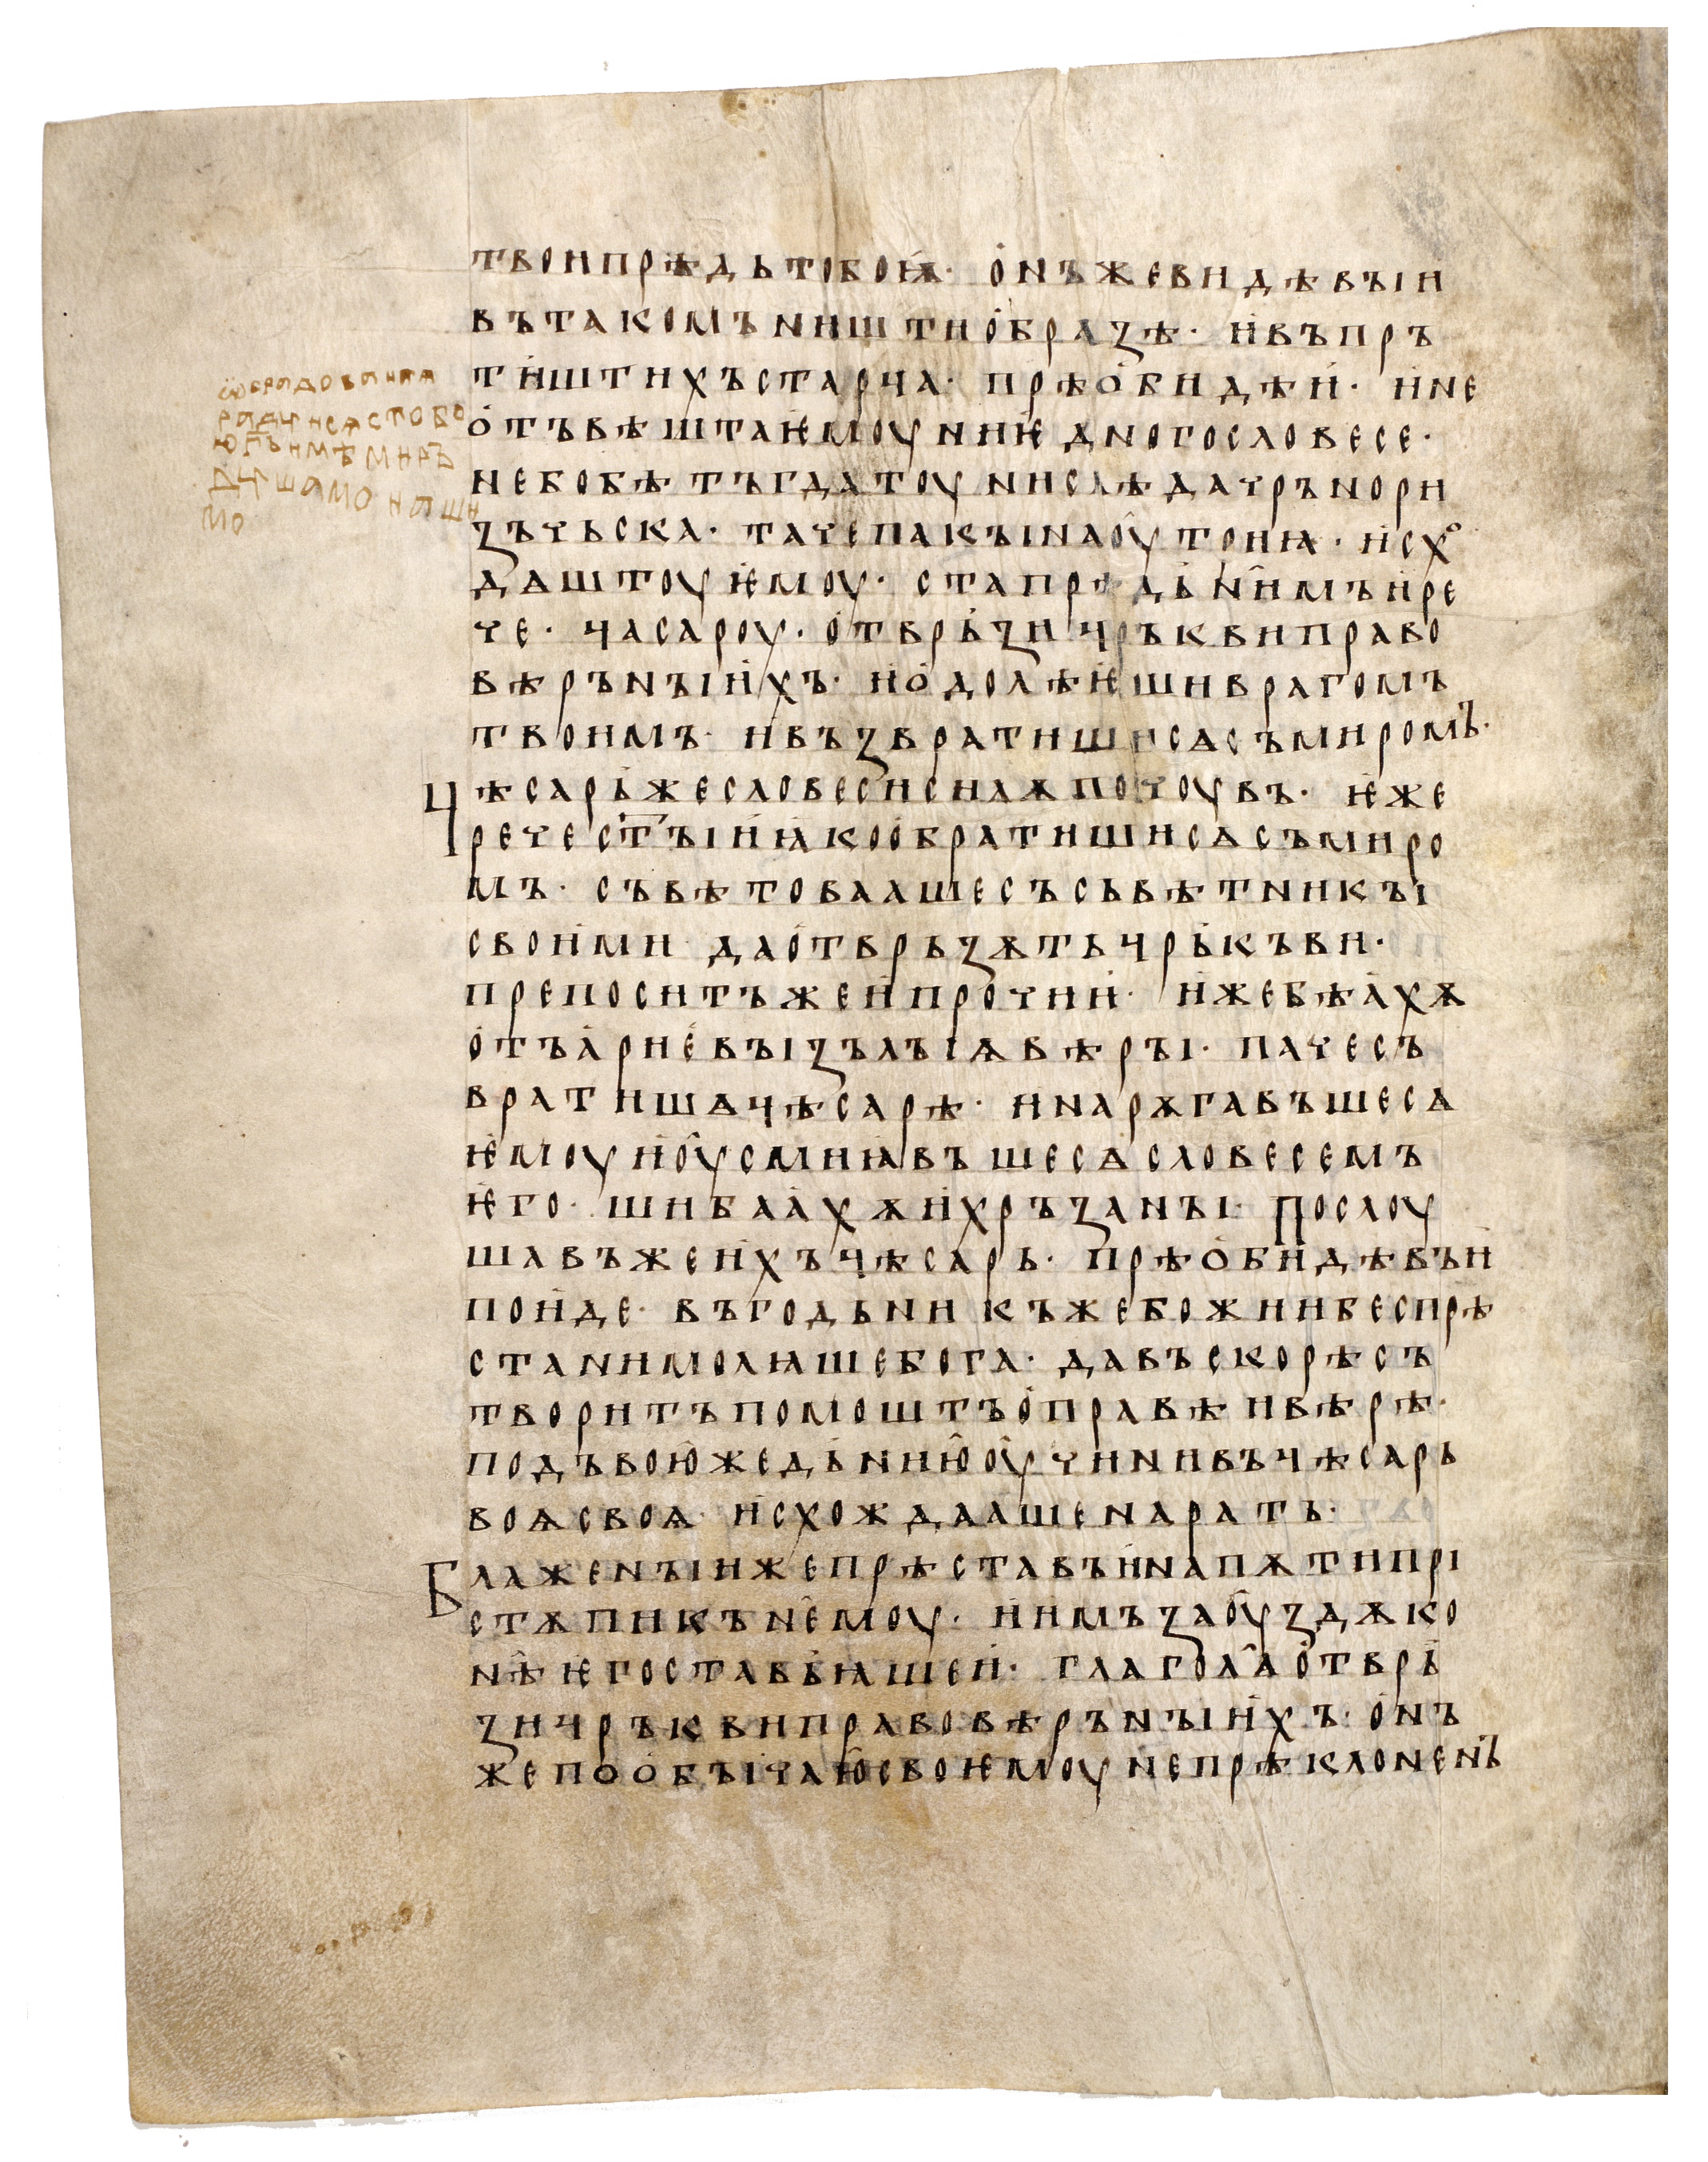 твои прѣдъ тобоѭ· онъ же видѣвъіи
въ такомъ ништи образѣ· и въ пръ
тиштихъ старца· прѣобидѣи· и не
отъвѣшта ѥмоу ни ѥдного словесе·
не бо бѣ тъгда тоу ни слѣда чрънори
зъчьска· таче пакъі на оутрониꙗ· исхо
дѧштоу ѥмоу· ста прѣдь н҄имъ и ре
че· цѣсароу· отврьзи црькви право
вѣръныихъ· и одолѣѥши врагомъ
твоимъ· и възвратиши сѧ съ миромъ·
Цѣсарь же словеси силѫ почоувъ· ѥже
рече ст҃ъіи ꙗко обратиши сѧ съ миро
мъ· съвѣтоваше съ съвѣтникъі
своими да отврьзѫтъ црькъви·
препоситъ же и прочии· иже бѣахѫ
отъ арневъі зълъіѩ вѣръі· паче съ
вратишѧ цѣсарѣ· и нарѫгавъше сѧ
ѥмоу и оусмиꙗвъше сѧ словесемъ
ѥго· шибаахѫ и хръзанъі· Послоу
шавъ же ихъ цѣсарь· прѣобидѣвъ и
поиде· въгодьникъ же божии бес прѣ
стани молꙗше бога· да въскорѣ съ
творитъ помошть о правѣи вѣрѣ·
по дъвою же дьнию оучинивъ цѣсарь
воѩ своѩ· исхождааше на рать·
Блаженъіи же прѣставъ и на пѫти при
стѫпи къ н҄емоу· и имъ за оуздѫ ко
н҄ѣ ѥго ставьꙗше и· глагол҄ѧ отврь
зи црькви правовѣръныихъ· онъ
же по обычаю своѥмоу не прѣклон҄енъ